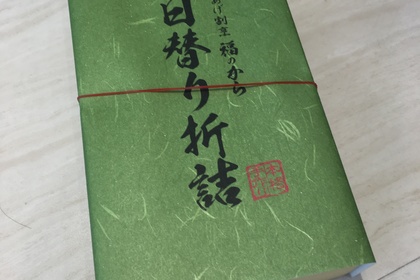 あげ割烹 福のから
日替り折詰